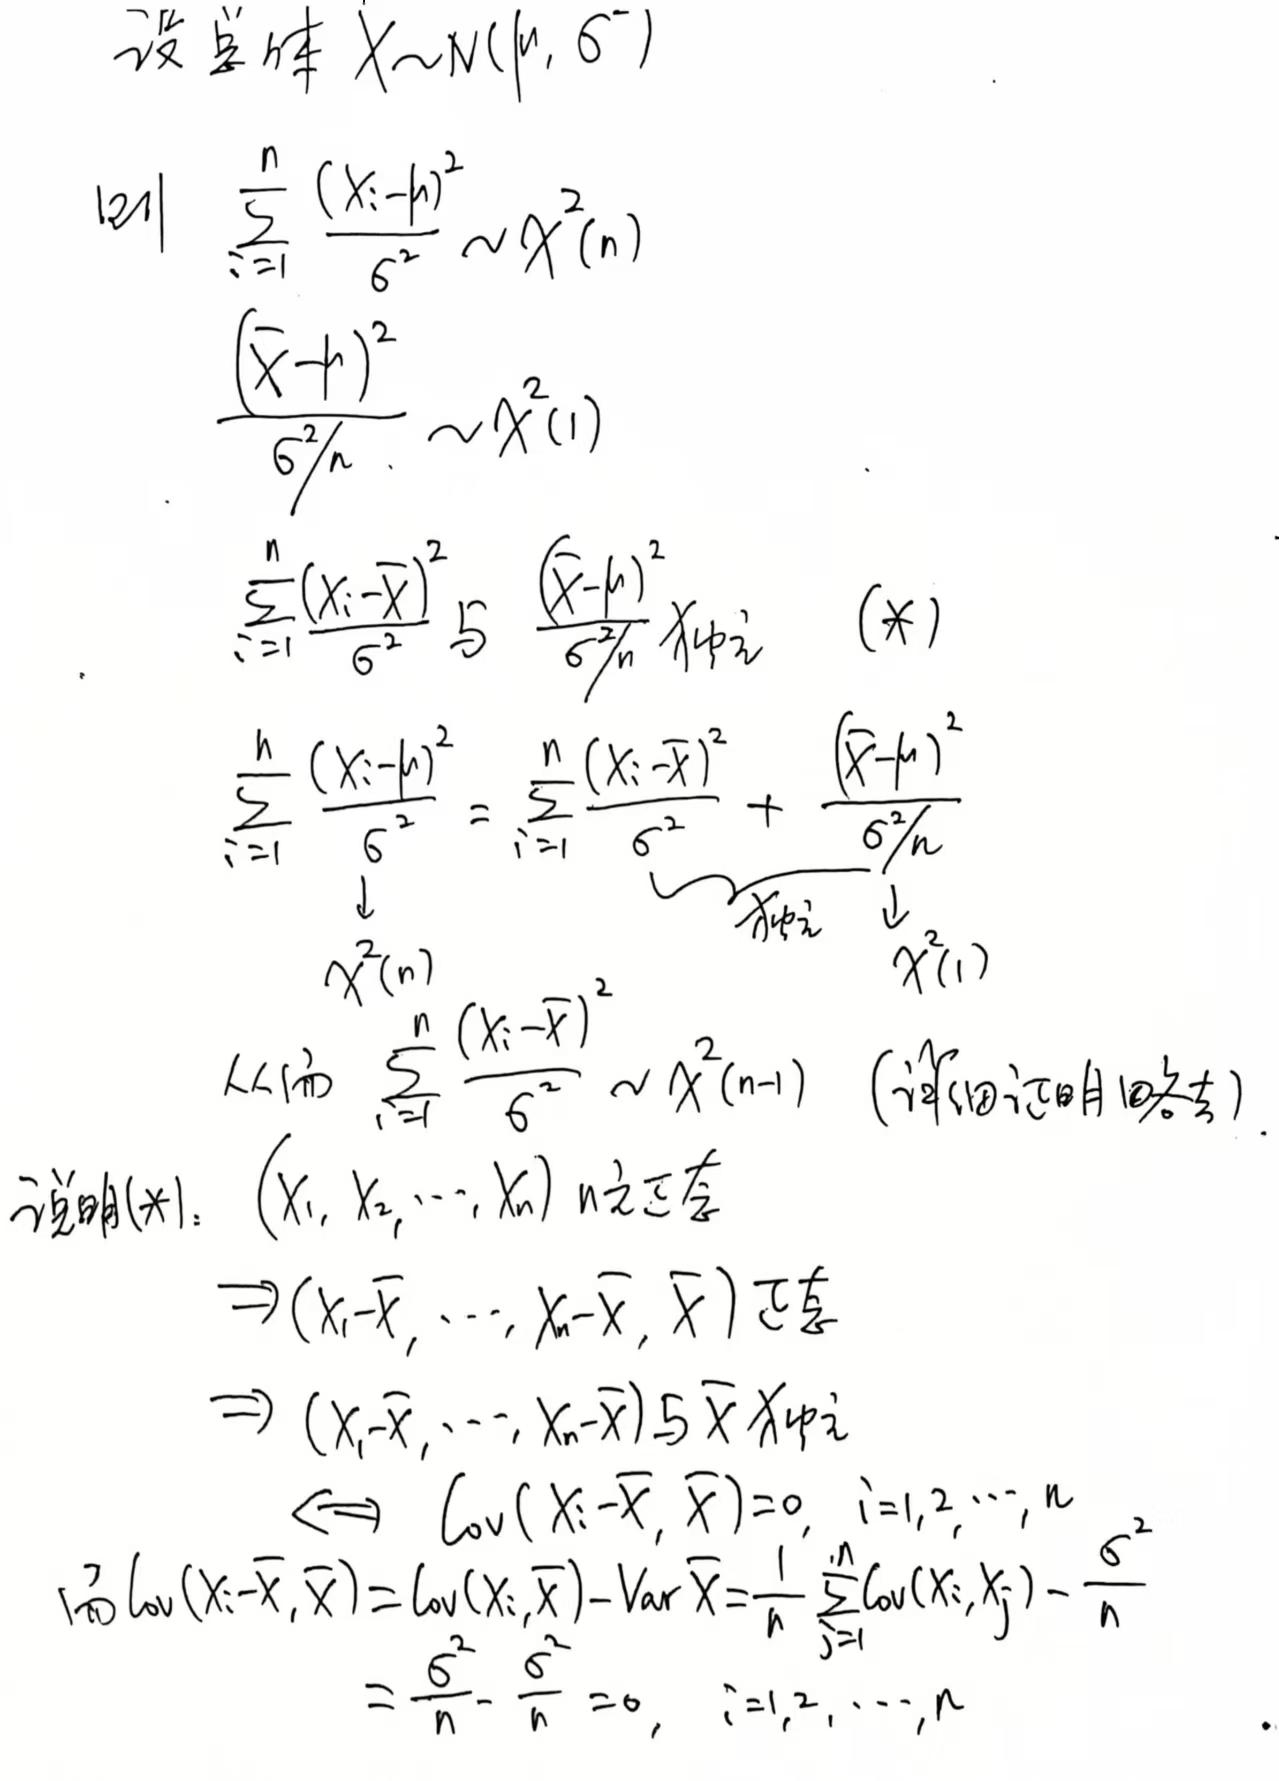 设总体 X~N(μ, σ²)
则 ∑_{i=1}^{n} (Xi-μ)²/σ² ~ χ²(n)
(X̄-μ)²/(σ²/n) ~ χ²(1)
∑_{i=1}^{n} (Xi-X̄)²/σ² 与 (X̄-μ)²/(σ²/n) 独立 (*)
∑_{i=1}^{n} (Xi-μ)²/σ² = ∑_{i=1}^{n} (Xi-X̄)²/σ² + (X̄-μ)²/(σ²/n)
↓ 独立 ↓
χ²(n) χ²(1)
从而 ∑_{i=1}^{n} (Xi-X̄)²/σ² ~ χ²(n-1) (详细证明略去).
说明(*): (X₁, X₂, ⋯, Xn) n元正态
⇒ (X₁-X̄, ⋯, Xn-X̄, X̄) 正态
⇒ (X₁-X̄, ⋯, Xn-X̄) 与 X̄ 独立
⟺ Cov(Xi-X̄, X̄)=0, i=1,2,⋯,n
而 Cov(Xi-X̄, X̄) = Cov(Xi, X̄) - Var X̄ = 1/n ∑_{j=1}^{n} Cov(Xi, Xj) - σ²/n
= σ²/n - σ²/n = 0, i=1,2,⋯,n